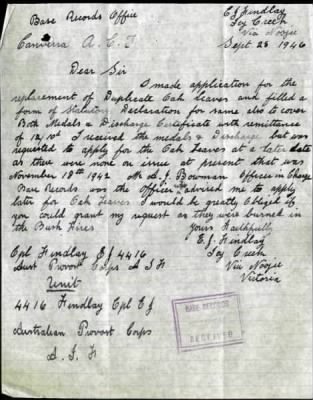 Base Records Office
E J Findlay
Icy Creek
Via Noojee
Canberra A.C.T
Sept 23 1946
Dear Sir
I made application for the
replacement of Duplicate Oak Leaves and filled a
form of Statutory Declaration for same also to cover
Both Medals & Discharge Certificate with remittance
of 12/10d I received the medals & Discharge but was
requested to apply for the Oak Leaves at a later date
as there were none on issue at present that was
November 18th 1942 Mr A J Bowman Officer in Charge
Base Records was the Officer advised me to apply
later for Oak Leaves I would be greatly Obliged if
you could grant my request as they were burned in
the Bush Fires
Yours Faithfully
E. J. Findlay
Icy Creek
Via Noojee
Victoria
Cpl Findlay E J 4416
Aust Provost Corps A I F
Unit
4416 Findlay Cpl E J
Australian Provost Corps
A. I. F
BASE RECORDS
RECEIVED